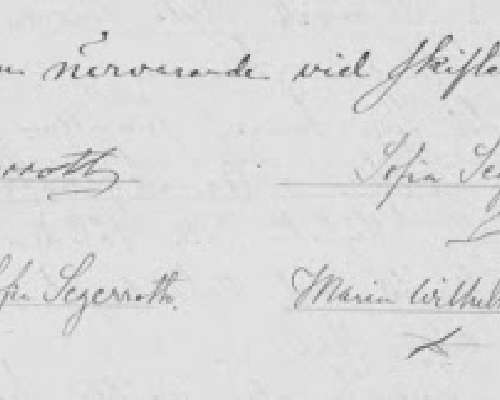 närvarande vid skifte
rroth Sofia Seg
fia Segerroth. Maria Wilhel